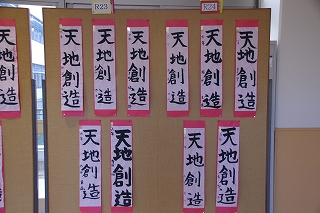 R23
R24
天地創造
天地創造
天地創造
天地創造
天地創造
天地創造
天地創造
天地創造
天地創造
天地創造
天地創造